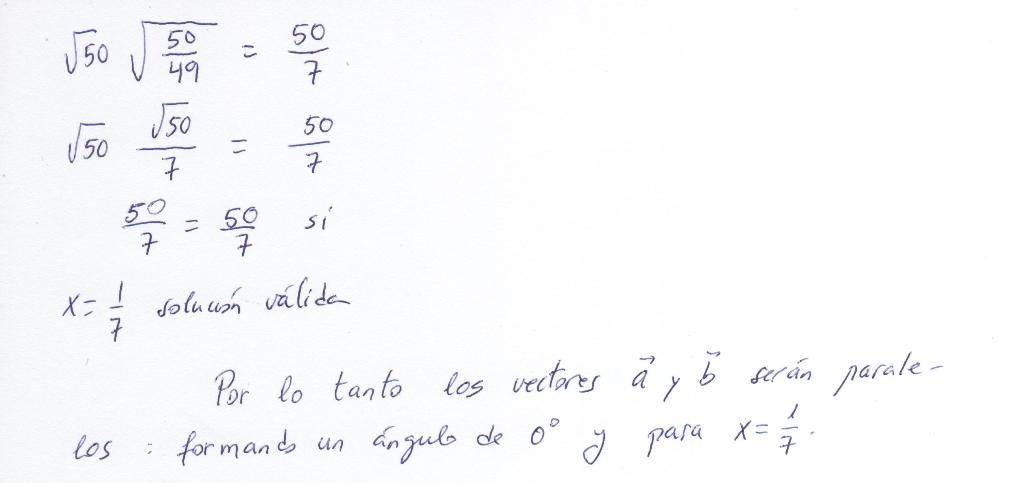 √50 √(50/49) = 50/7
√50 √50/7 = 50/7
50/7 = 50/7 si
x = 1/7 solución válida
Por lo tanto los vectores a⃗ y b⃗ serán parale-
los : formando un ángulo de 0° y para x = 1/7.